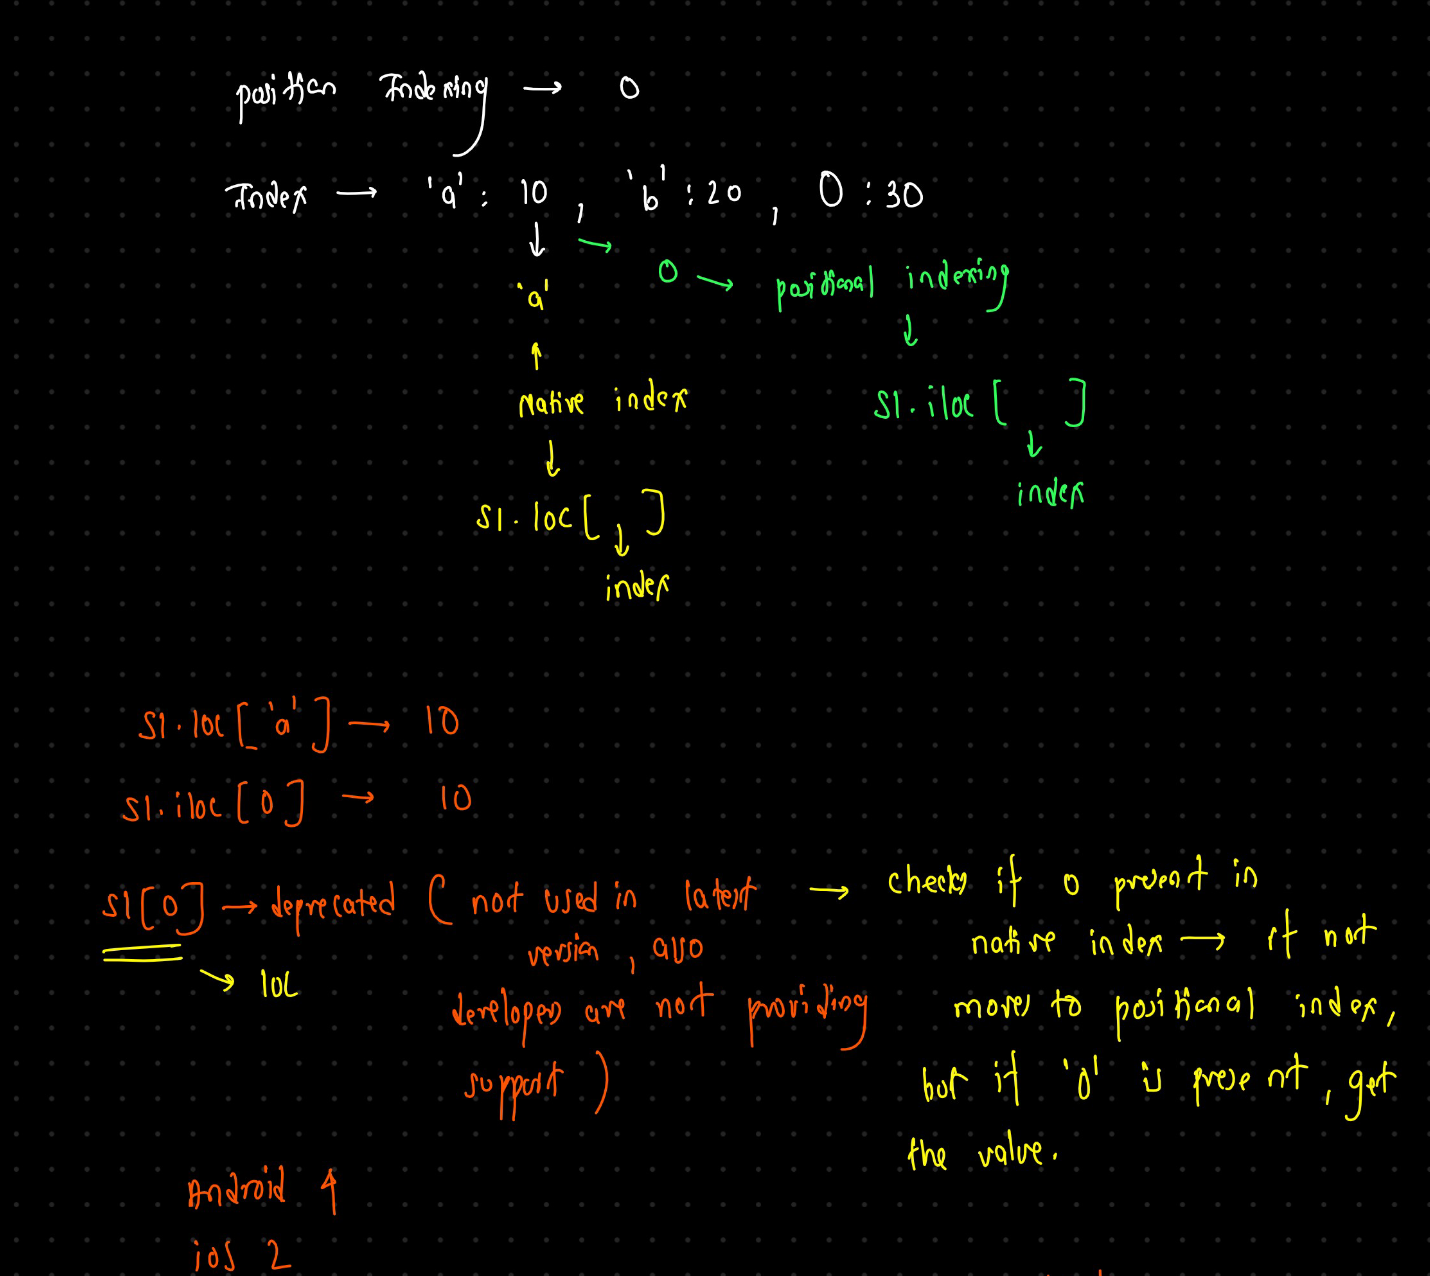 position Indexing → 0
Index → 'a': 10, 'b': 20, 0: 30
↓ →
'a' 0 → positional indexing
↑ ↓
Native index s1.iloc[ ]
↓ ↓
s1.loc[ ] index
↓
index
s1.loc['a'] → 10
s1.iloc[0] → 10
s1[0] → deprecated (not used in latest
version, also
developers are not providing
support)
→ loc
→ checks if 0 present in
native index → if not
moves to positional index,
but if '0' is present, get
the value.
Android 4
ios 2